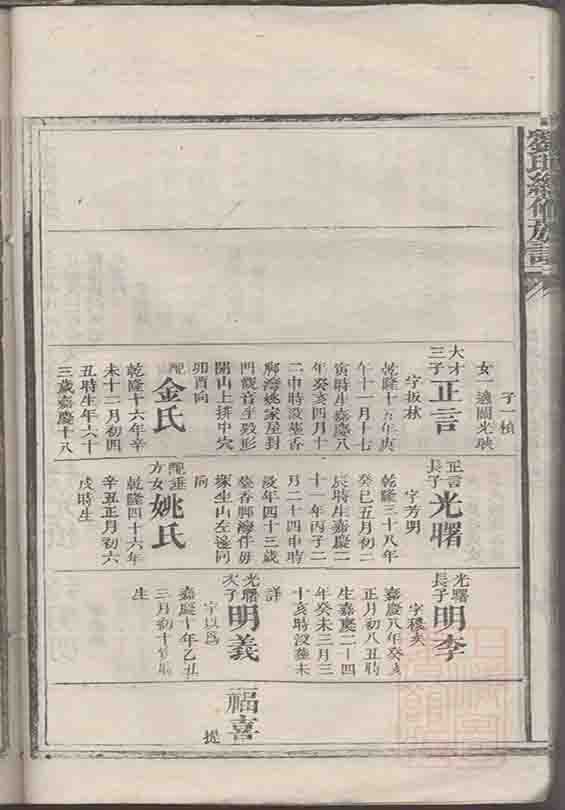 劉氏續修族譜
子一楨
女一適關光映
大才三子
正言
字扳林
乾隆十五年庚
午十一月十七
寅時生嘉慶八
年癸亥四月十
二申時沒塟香
鄉海姚家屋對
門觀音坐殿形
開山上排中穴
卯酉向
配
金氏
乾隆十六年辛
未十二月初四
丑時生年六十
三歲嘉慶十八
正言長子
光曙
字芳明
乾隆三十八年
癸巳五月初二
辰時生嘉慶二
十一年丙子二
月二十四申時
沒年四十三歲
塟香鄉海
坐山左邊同
向
配
方女
姚氏
乾隆四十六年
辛丑正月初六
戌時生
光曙長子
明李
字
嘉慶八年癸亥
正月初八丑時
生嘉慶二十四
年癸未三月三
十亥時沒塟未
詳
光曙次子
明義
字以為
嘉慶十年乙丑
三月初十
生
福喜